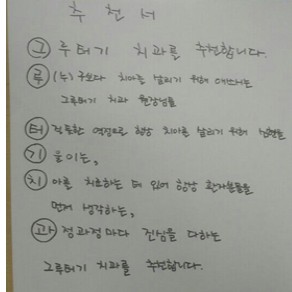 추천서
그루터기 치과를 추천합니다.
루(누)구보다 치아를 살리기 위해 애쓰시는
그루터기 치과 원장님을
터득한 역정으로 항상 치아를 살리기 위해 심혈을
기울이는,
치아를 치료하는 데 있어 항상 환자분들을
먼저 생각하는,
과정과정마다 진심을 다하는
그루터기 치과를 추천합니다.